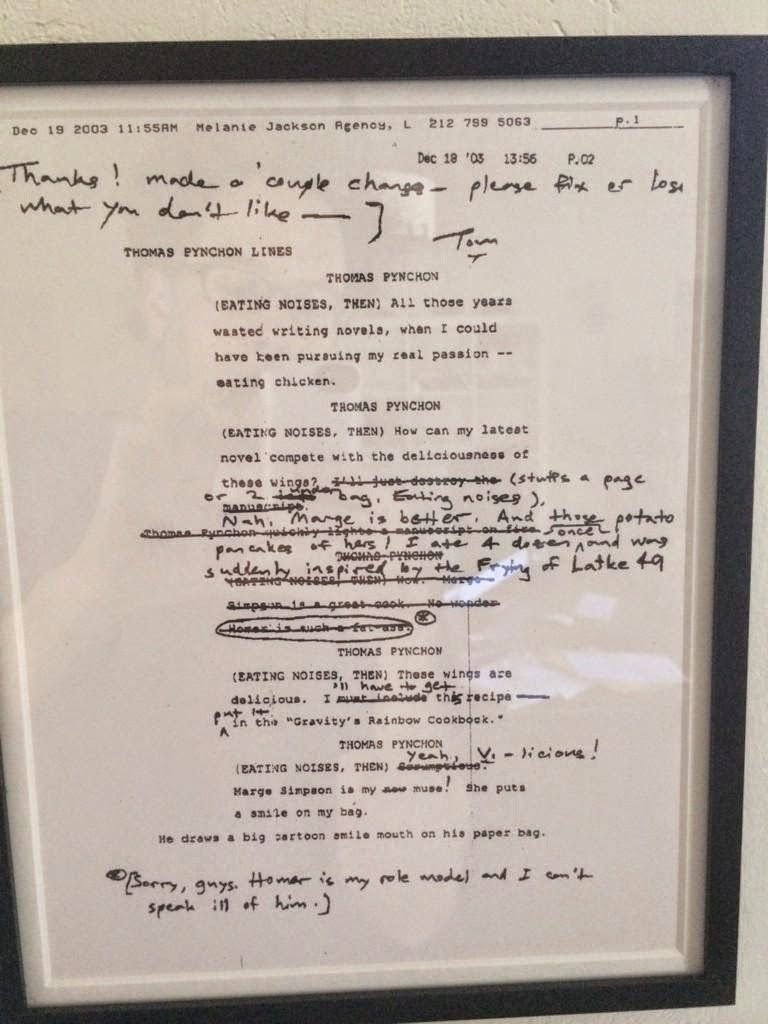 Dec 19 2003 11:55AM Melanie Jackson Agency, L 212 799 5063 p.1
Dec 18 '03 13:56 P.02
Thanks! made a couple changes — please fix or lose
what you don't like —
Tom
THOMAS PYNCHON LINES
THOMAS PYNCHON
(EATING NOISES, THEN) All those years
wasted writing novels, when I could
have been pursuing my real passion --
eating chicken.
THOMAS PYNCHON
(EATING NOISES, THEN) How can my latest
novel compete with the deliciousness of
these wings? I'll just destroy the (stuffs a page
or 2 into under bag. Eating noises),
manuscript.
Nah, Marge is better. And those potato
Thomas Pynchon quickly lights a manuscript on fire
pancakes of hers! I ate 4 dozen once, and was
THOMAS PYNCHON
suddenly inspired by the Frying of Latke 49
(EATING NOISES, THEN) Wow. Marge
Simpson is a great cook. No wonder
Homer is such a fat-ass. *
THOMAS PYNCHON
(EATING NOISES, THEN) These wings are
'll have to get
delicious. I must include this recipe —
put it
in the "Gravity's Rainbow Cookbook."
THOMAS PYNCHON
Yeah, V. - licious!
(EATING NOISES, THEN) Scrumptious.
Marge Simpson is my new muse! She puts
a smile on my bag.
He draws a big cartoon smile mouth on his paper bag.
* [Sorry, guys. Homer is my role model and I can't
speak ill of him.]